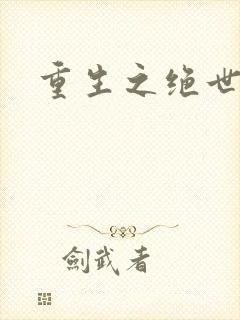 重生之绝世
劍武者